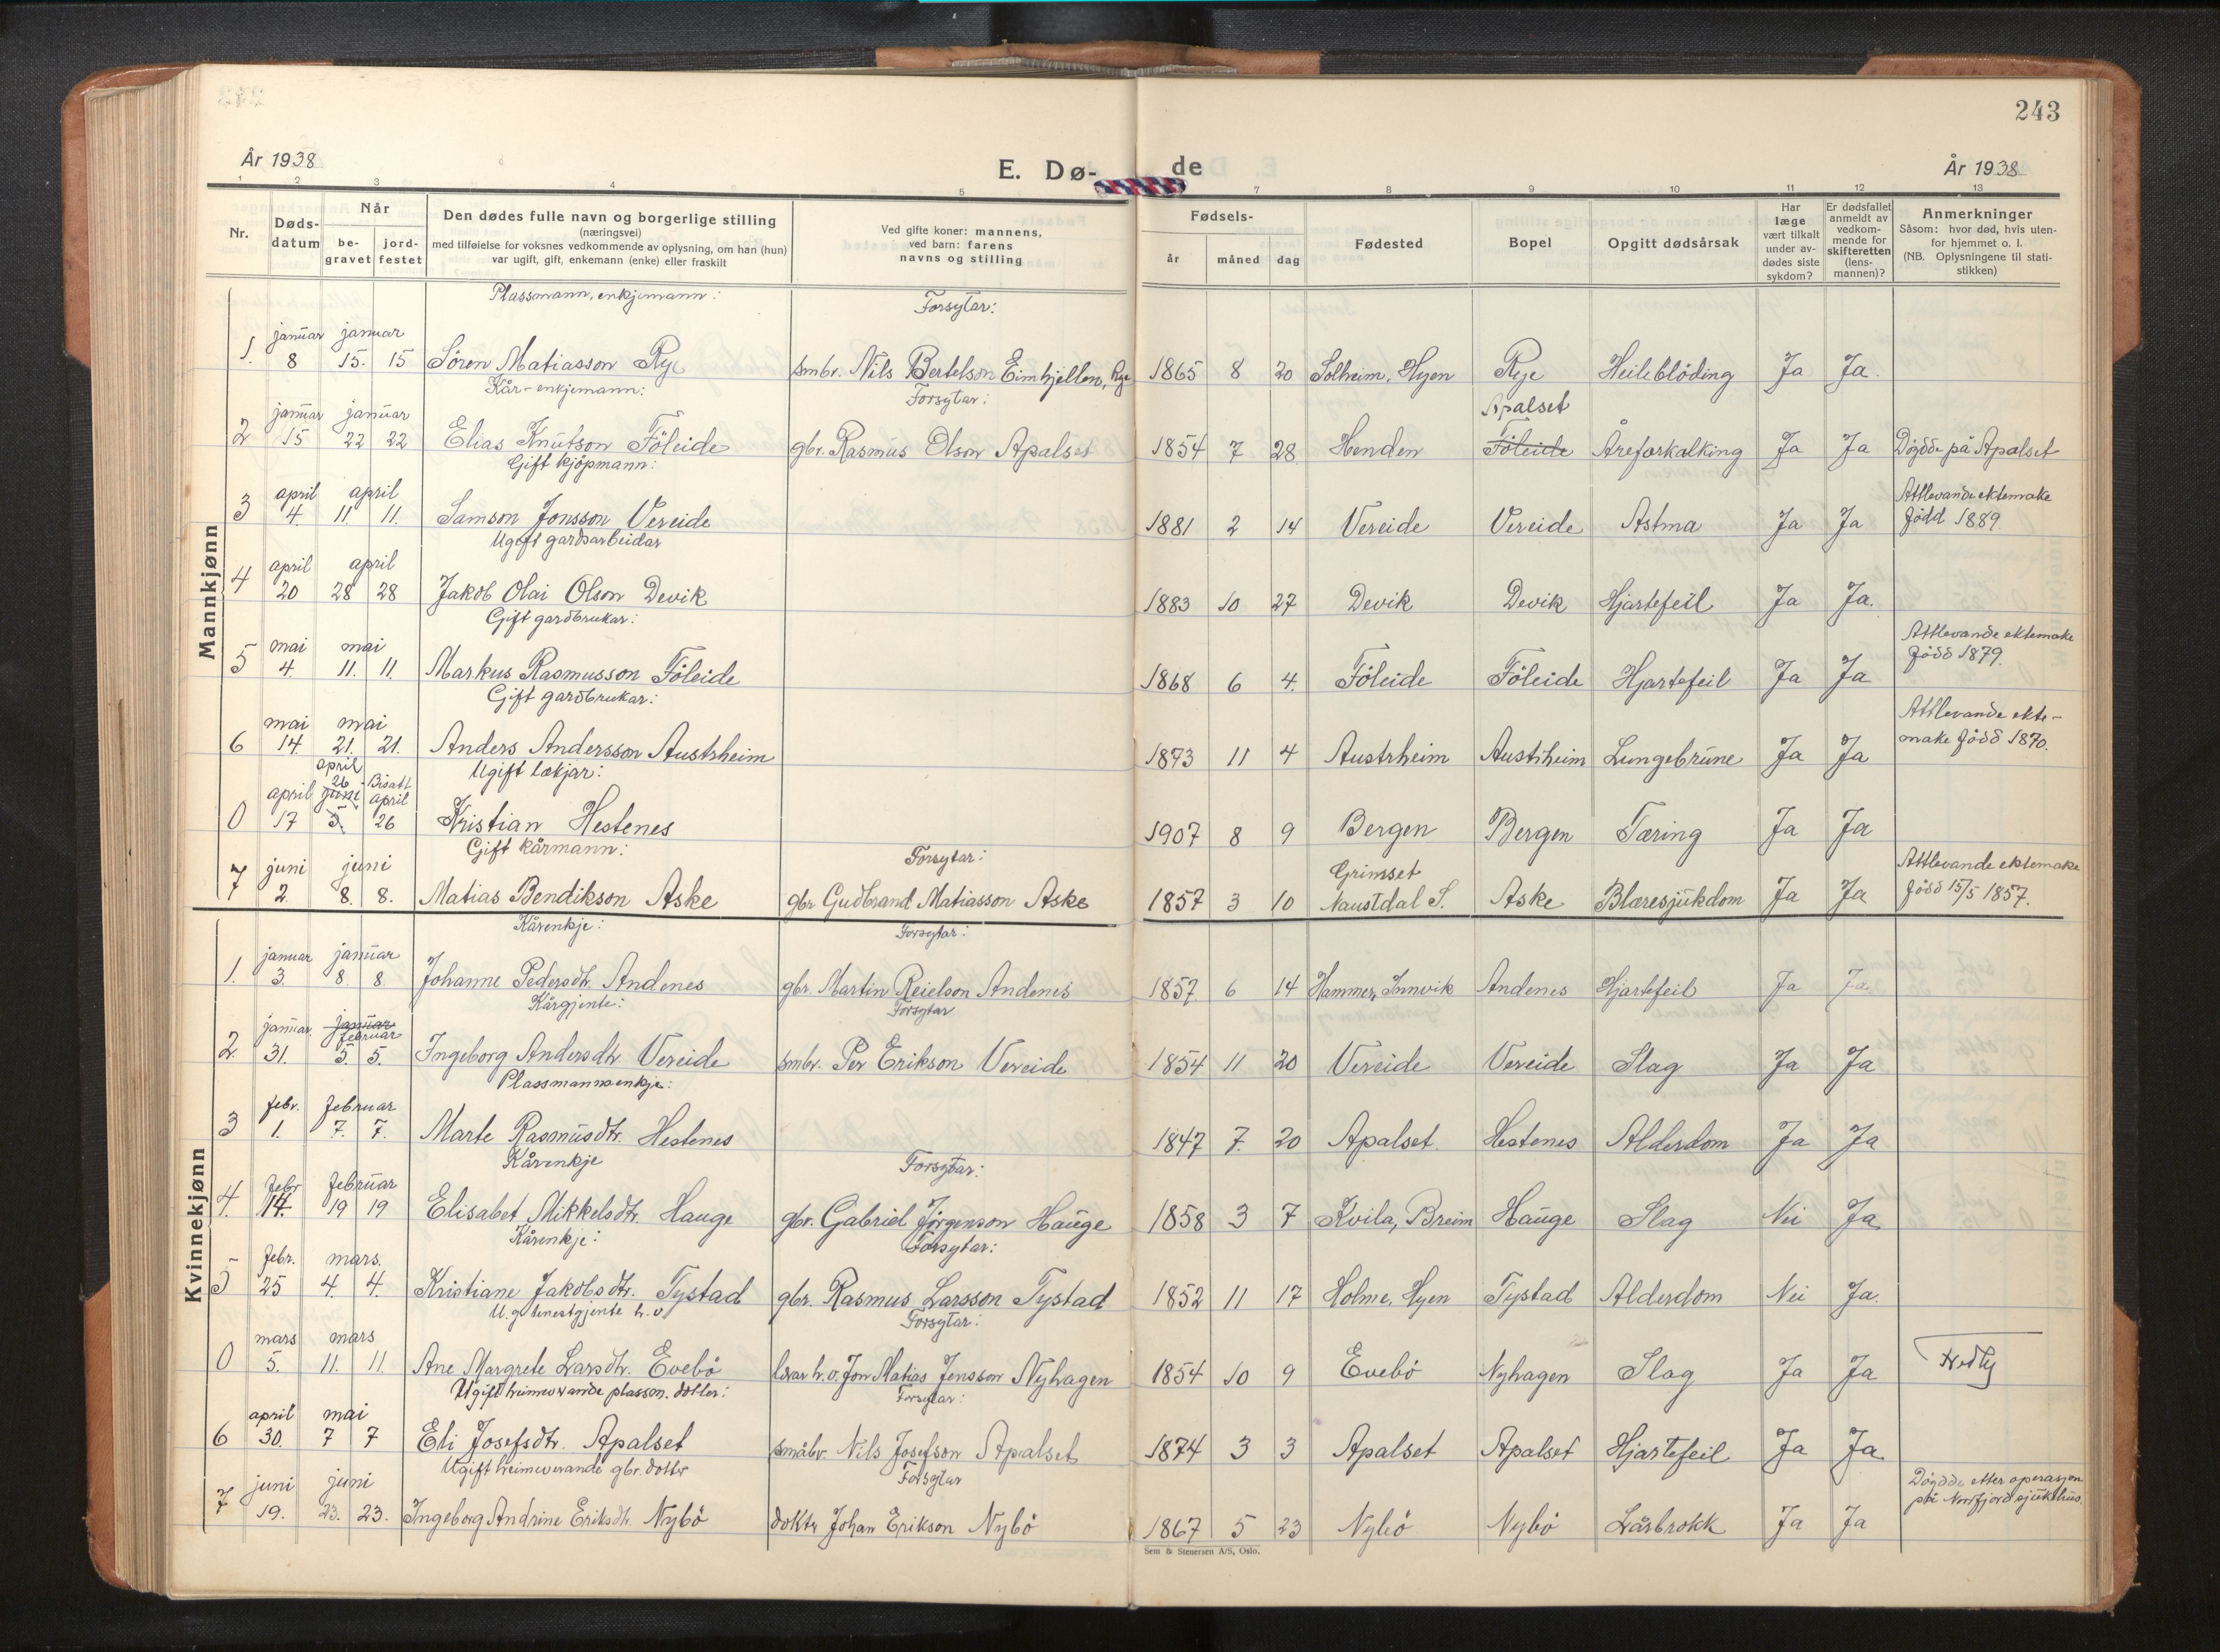 243
År 1938
E. Dø-
de
År 1938
1 2 3 4 5 7 8 9 10 11 12 13
Nr.
Døds-
datum
Når
be-
gravet
jord-
festet
Den dødes fulle navn og borgerlige stilling
(næringsvei)
med tilføielse for voksnes vedkommende av oplysning, om han (hun)
var ugift, gift, enkemann (enke) eller fraskilt
Ved gifte koner: mannens,
ved barn: farens
navns og stilling
Fødsels-
år måned dag
Fødested
Bopel
Opgitt dødsårsak
Har
læge
vært tilkalt
under av-
dødes siste
sykdom?
Er dødsfallet
anmeldt av
vedkom-
mende for
skifteretten
(lens-
mannen)?
Anmerkninger
Såsom: hvor død, hvis uten-
for hjemmet o. l.
(NB. Oplysningene til stati-
stikken)
Mannkjønn
Plassmann, enkjemann: Forsytar:
januar januar
1. 8 15. 15 Sören Matiasson Rye smbr. Nils Bertelson Eimhjellen, Rye 1865 8 20 Solheim, Hyen Rye Heileblöding Ja Ja.
Kår-enkjemann: Forsytar:
januar januar Apalset
2 15 22 22 Elias Knutson Föleide gbr. Rasmus Olson Apalset 1854 7 28 Henden Föleide Åreforkalking Ja Ja Döydde på Apalset
Gift kjöpmann:
april april Attlevande ektemake
3 4. 11. 11. Samson Jonsson Vereide 1881 2 14 Vereide Vereide Astma Ja Ja född 1889
Ugift gardsarbeidar
april april
4 20 28 28 Jakob Olai Olson Devik 1883 10 27 Devik Devik Hjartefeil Ja Ja.
Gift gardbrukar:
mai mai Attlevande ektemake
5 4. 11. 11. Markus Rasmusson Föleide 1868 6 4. Föleide Föleide Hjartefeil Ja Ja född 1879.
Gift gardbrukar:
mai mai Attlevande ekte-
6 14. 21. 21. Anders Andersson Austrheim 1873 11 4 Austrheim Austrheim Lungebrune Ja Ja make född 1870.
Ugift lækjar:
april
26 Bisatt
april juni april
0 17 5. 26 Kristian Hestenes 1907 8 9 Bergen Bergen Tæring Ja Ja
Gift kårmann: Forsytar:
juni juni Grimset Attlevande ektemake
7 2. 8. 8. Matias Bendikson Aske gbr Gudbrand Matiasson Aske 1857 3 10 Naustdal S. Aske Blæresjukdom Ja Ja född 15/5 1857.
Kvinnekjønn
Kårenkje: Forsytar:
januar januar
1. 3. 8. 8. Johanne Pedersdtr. Andenes gbr. Martin Reielson Andenes 1857 6 14 Hammer, Innvik Andenes Hjartefeil Ja Ja
Kårgjente: Forsytar
januar. januar
februar
2. 31. 5. 5. Ingeborg Andersdtr. Vereide smbr. Per Erikson Vereide 1854 11 20 Vereide Vereide Slag Ja Ja
Plassmannsenkje:
febr. februar
3 1. 7. 7. Marte Rasmusdtr. Hestenes 1847 7. 20 Apalset. Hestenes Alderdom Ja Ja
Kårenkje Forsytar:
febr februar
4. 14. 19 19 Elisabet Mikkelsdtr. Hauge gbr. Gabriel Jörgenson Hauge 1858 3 7 Kvila, Breim Hauge Slag Nei Ja
Kårenkje: Forsytar:
febr. mars.
5 25 4. 4. Kristiane Jakobsdtr. Tystad gbr. Rasmus Larsson Tystad 1852 11 17 Holme, Hyen Tystad Alderdom Nei Ja.
U.g. tenestgjente h.v. Forsytar:
mars mars
0 5. 11. 11. Ane Margrete Larsdtr. Evebö h.v. Jon Matias Jensson Nyhagen 1854 10 9 Evebö Nyhagen Slag Ja Ja
Ugift heimeverande plassm. dotter: Forsytar:
april mai
6 30. 7 7 Eli Josefsdtr. Apalset småbr Nils Josefson Apalset 1874 3 3 Apalset Apalset Hjartefeil Ja Ja
Ugift heimeverande gbr. dotter Forsytar
juni juni Döydde etter operasjon
7 19. 23. 23. Ingeborg Andrine Eriksdtr. Nybö doktr Johan Erikson Nybö 1867 5 23 Nybö Nybö Låsbrokk Ja Ja på Nordfjord sjukehus.
Sem & Stenersen A/S, Oslo.